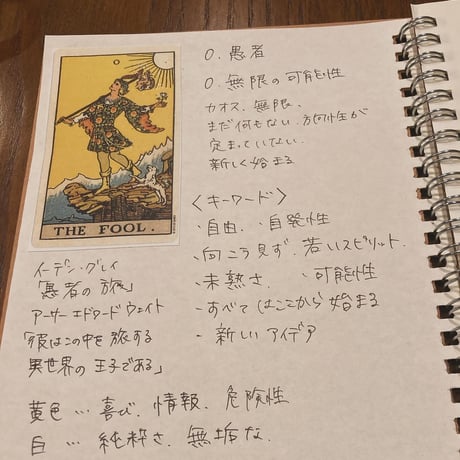 0
THE FOOL.
0. 愚者
0. 無限の可能性
カオス、無限、
まだ何もない、方向性が
定まっていない
新しく始まる
〈キーワード〉
・自由、・自発性
・向こう見ず、若いスピリット、
・未熟さ、・可能性
・すべてはここから始まる
・新しいアイデア
イーデン・グレイ
「愚者の旅」
アーサーエドワードウェイト
「彼はこの中を旅する
異世界の王子である」
黄色…喜び、情報、危険性
白…純粋さ、無垢な、